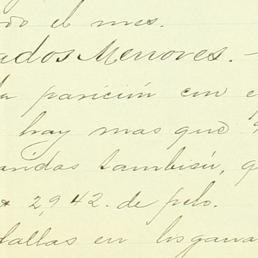 do el mes.
ados Menores. -
la paricion con e
hay mas que
andas tambien, q
2,942. de pelo.
fallas en los gana